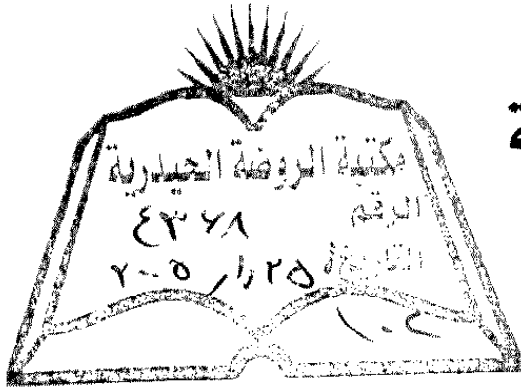 مكتبة الروضة الحيدرية
الرقم ٤٣٧٨
التاريخ
١٠٤